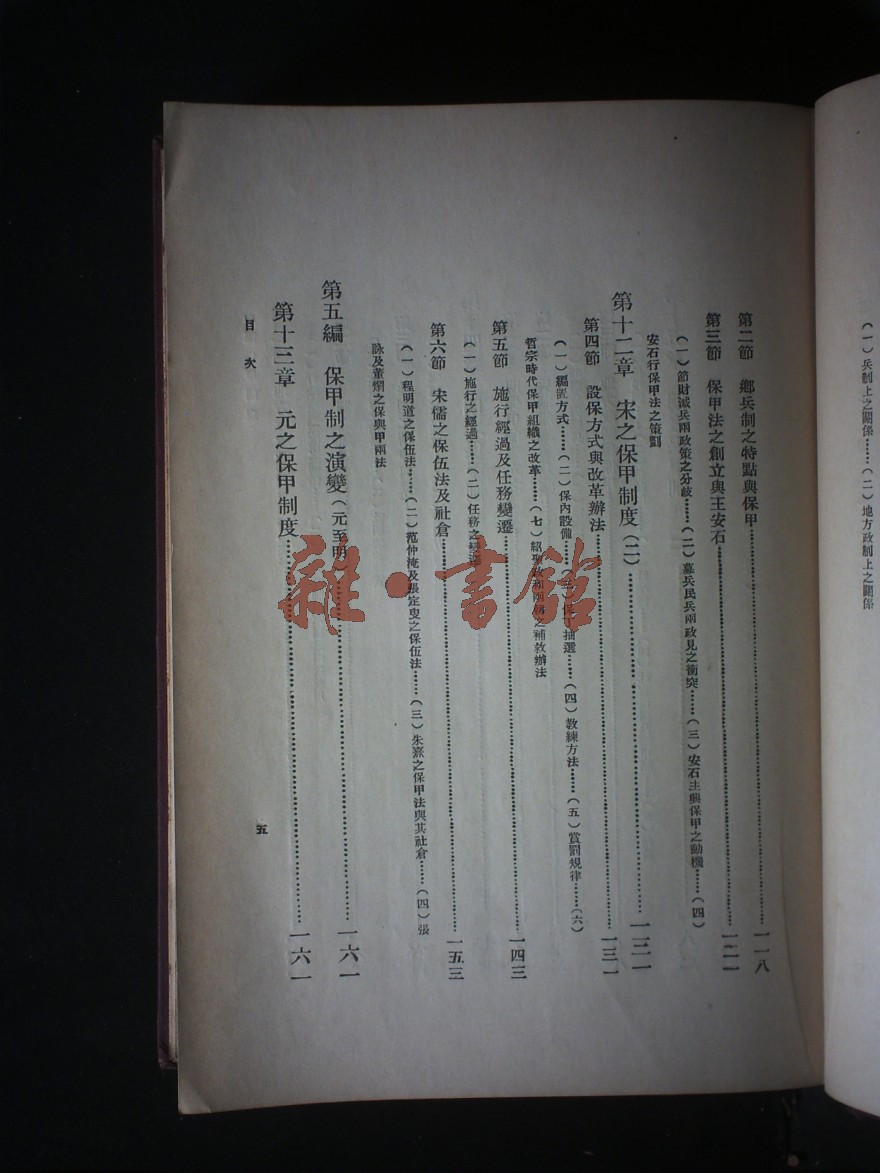 （一）兵制上之關係……（二）地方政制上之關係
第二節　鄉兵制之特點與保甲……一一八
第三節　保甲法之創立與王安石……一二一
（一）節財減兵兩政策之分歧……（二）募兵民兵兩政見之衝突……（三）安石主興保甲之動機……（四）
安石行保甲法之策劃
第十二章　宋之保甲制度（二）……一三一
第四節　設保方式與改革辦法……一三一
（一）編置方式……（二）保內設備……（三）保丁抽選……（四）教練方法……（五）賞罰規律……（六）
哲宗時代保甲組織之改革……（七）紹聖政和兩朝之補救辦法
第五節　施行經過及任務變遷……一四三
（一）施行之經過……（二）任務之變遷
第六節　宋儒之保伍法及社倉……一五三
（一）程明道之保伍法……（二）范仲淹及張定叟之保伍法……（三）朱熹之保甲法與其社倉……（四）張
詠及董煟之保與甲兩法
第五編　保甲制之演變（元至明）……一六一
第十三章　元之保甲制度……一六一
目次
五
雜·書館